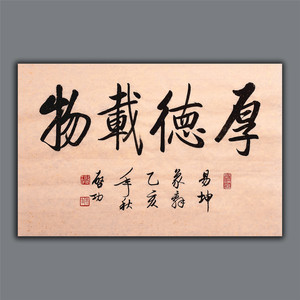 厚德載物
易坤
象辞
乙亥
年秋
启功